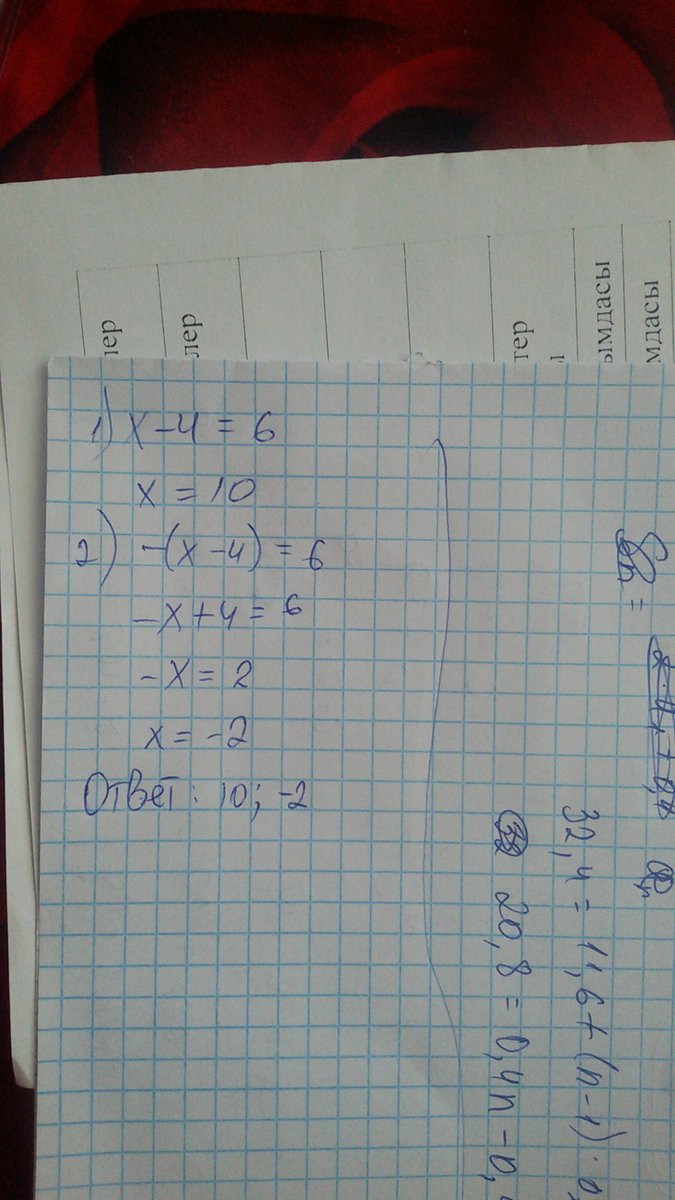 1) x - 4 = 6
x = 10
2) -(x - 4) = 6
-x + 4 = 6
-x = 2
x = -2
Ответ: 10; -2
32,4 = 11,6 + (n - 1) · 0,
20,8 = 0,4n - 0,
лер
лер
тер
ы
ымдасы
мдасы